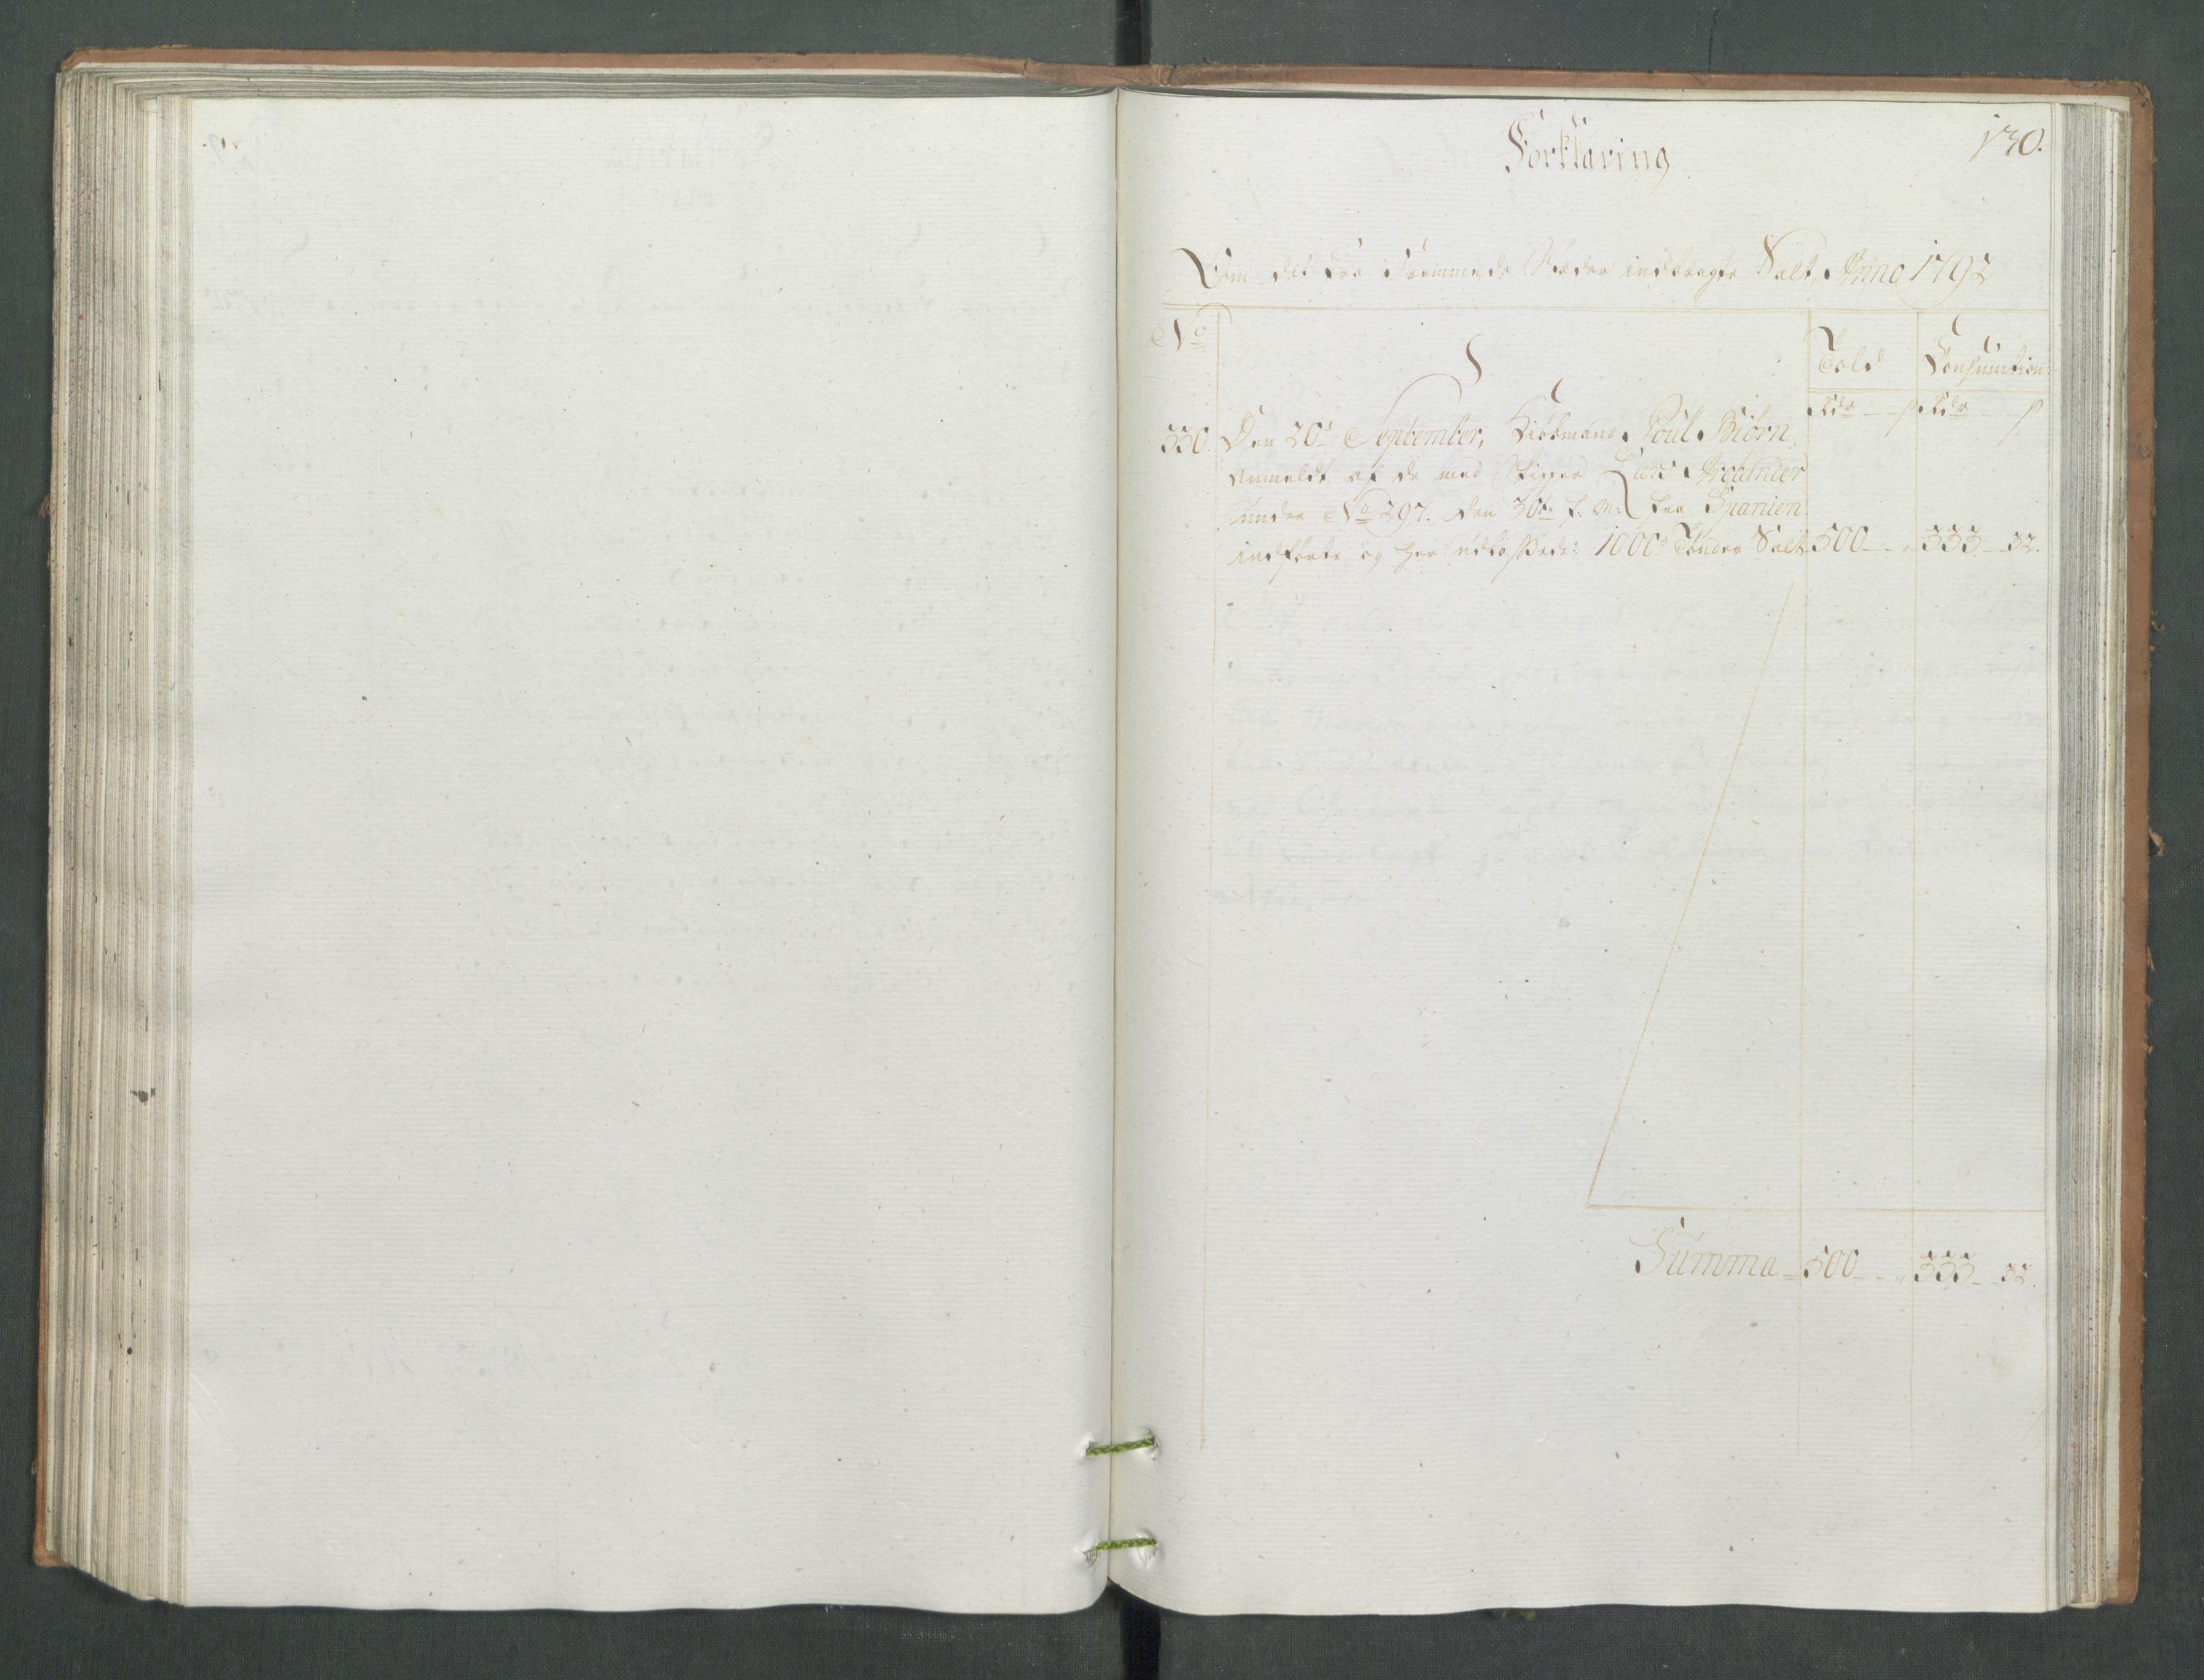 130.
Forklaring
Om det fra Fremmede Stæder indbragte Salt, Anno 1792
No Told Consumtion
Rdr ß Rdr ß
330. Den 20de September, Kiøbmand Poul Biørn,
Anmeldt af de med Skipper Lars
under No 297. den 30te f: M: fra Spanien
indførte og her udlossede: 1000de Tønder Salt 500 - „ 333 - 32.
Summa 500 - „ 333 - 32.